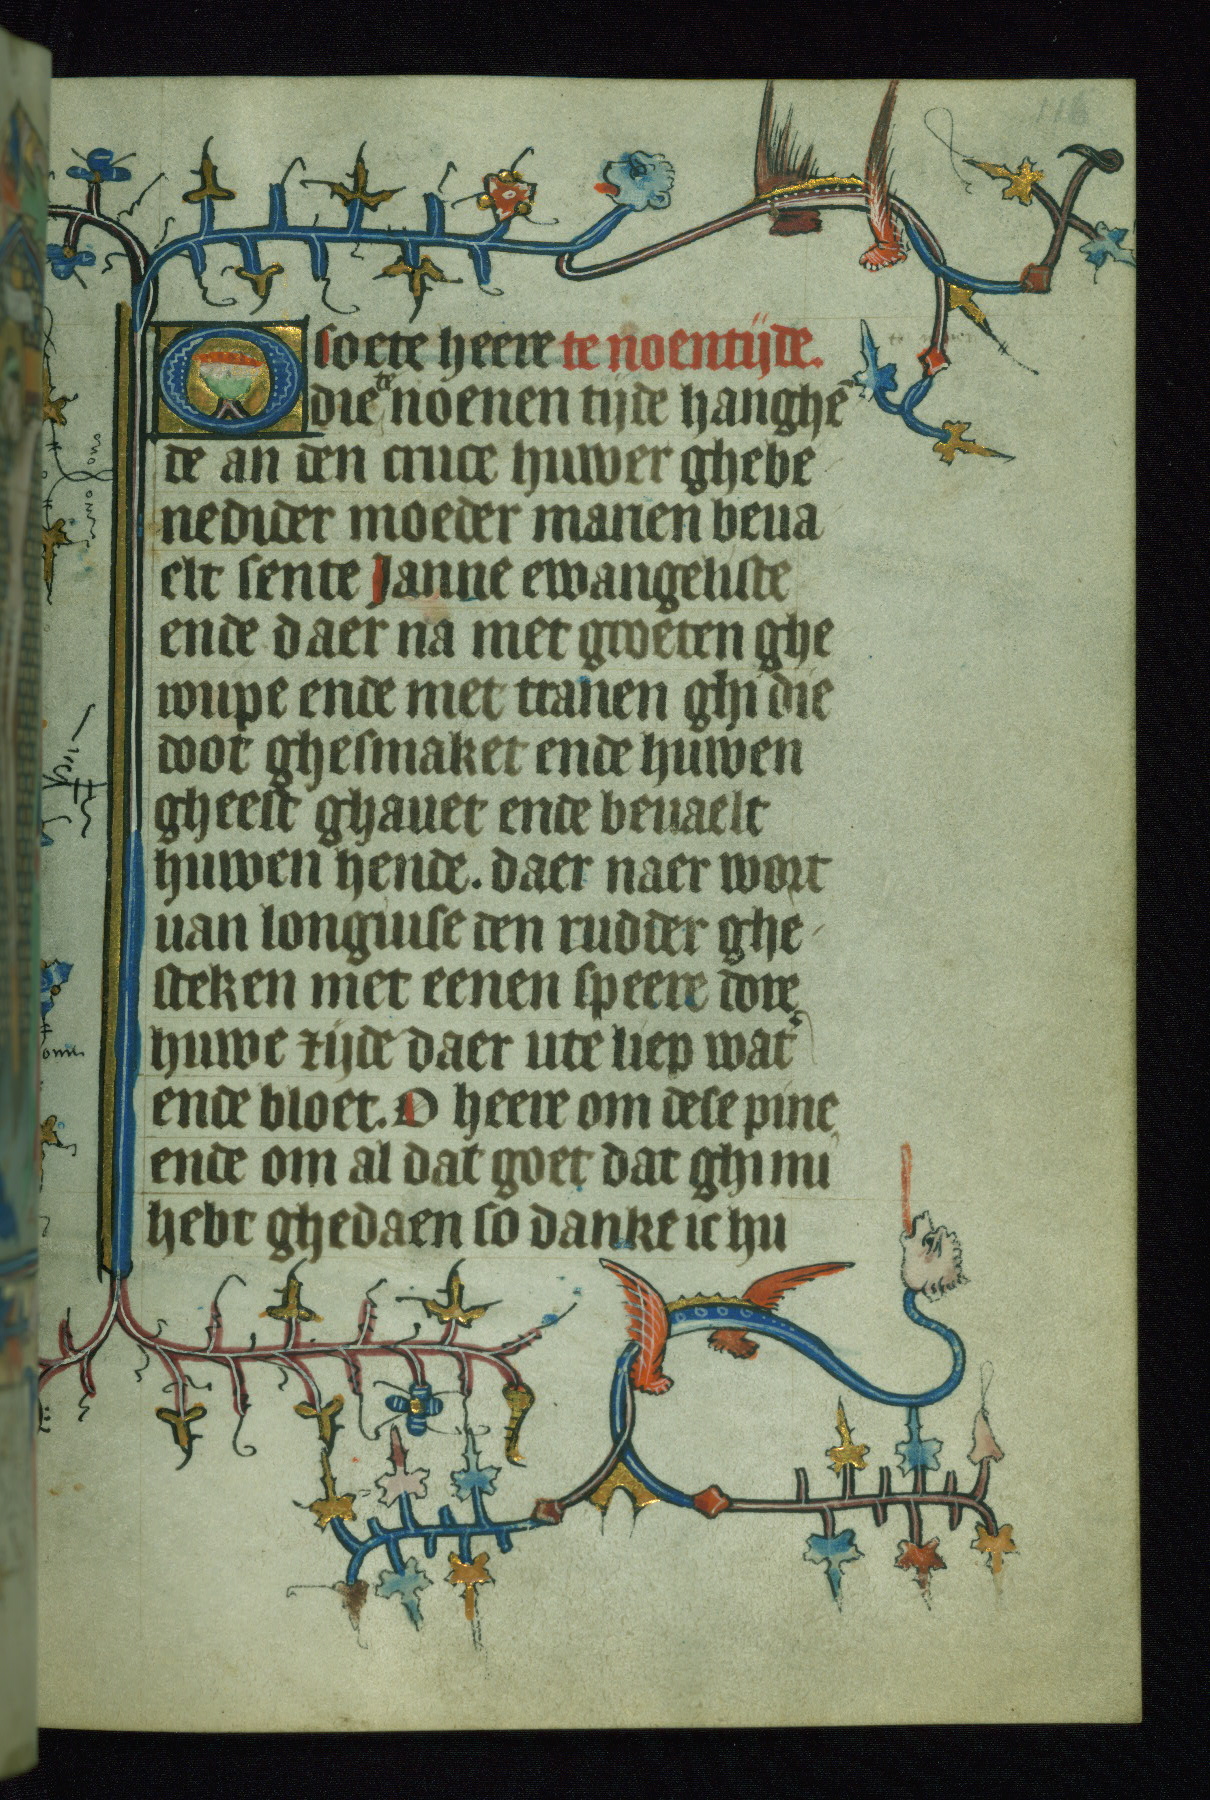 O soete heere te noentijde.
die te noenen tijde hanghē
de an den cruce huwer ghebe
nedider moeder marien beua
elt sente Janne ewangeliste
ende daer na met groeten ghe
wupe ende met tranen ghi die
doot ghesmaket ende huwen
gheest ghauet ende beuaelt
huwen hende. daer naer wort
uan longinise den rudder ghe
steken met eenen speere dore
huwe zijde daer ute liep wat̄
ende bloet. O heere om dese pine
ende om al dat goet dat ghi mi
hebt ghedaen so danke ic hu